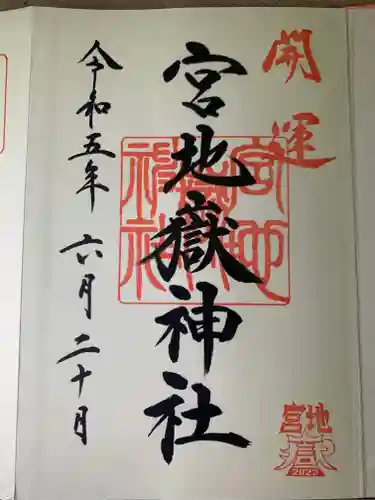 開運
宮地嶽神社
宮地嶽神社
令和五年 六月二十月
宮地
嶽
2023